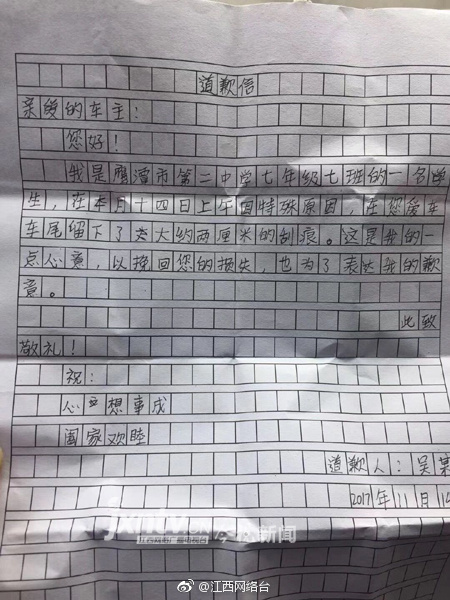 道歉信
亲爱的车主：
您好！
我是鹰潭市第二中学七年级七班的一名学
生，在本月十四日上午因特殊原因，在您爱车
车尾留下了大约两厘米的刮痕。这是我的一
点心意，以挽回您的损失，也为了表达我的歉
意。
此致
敬礼！
祝：
心想事成
阖家欢睦
道歉人：吴某
2017年11月14
jxntv.cn 新闻
江西网络广播电视台
@江西网络台